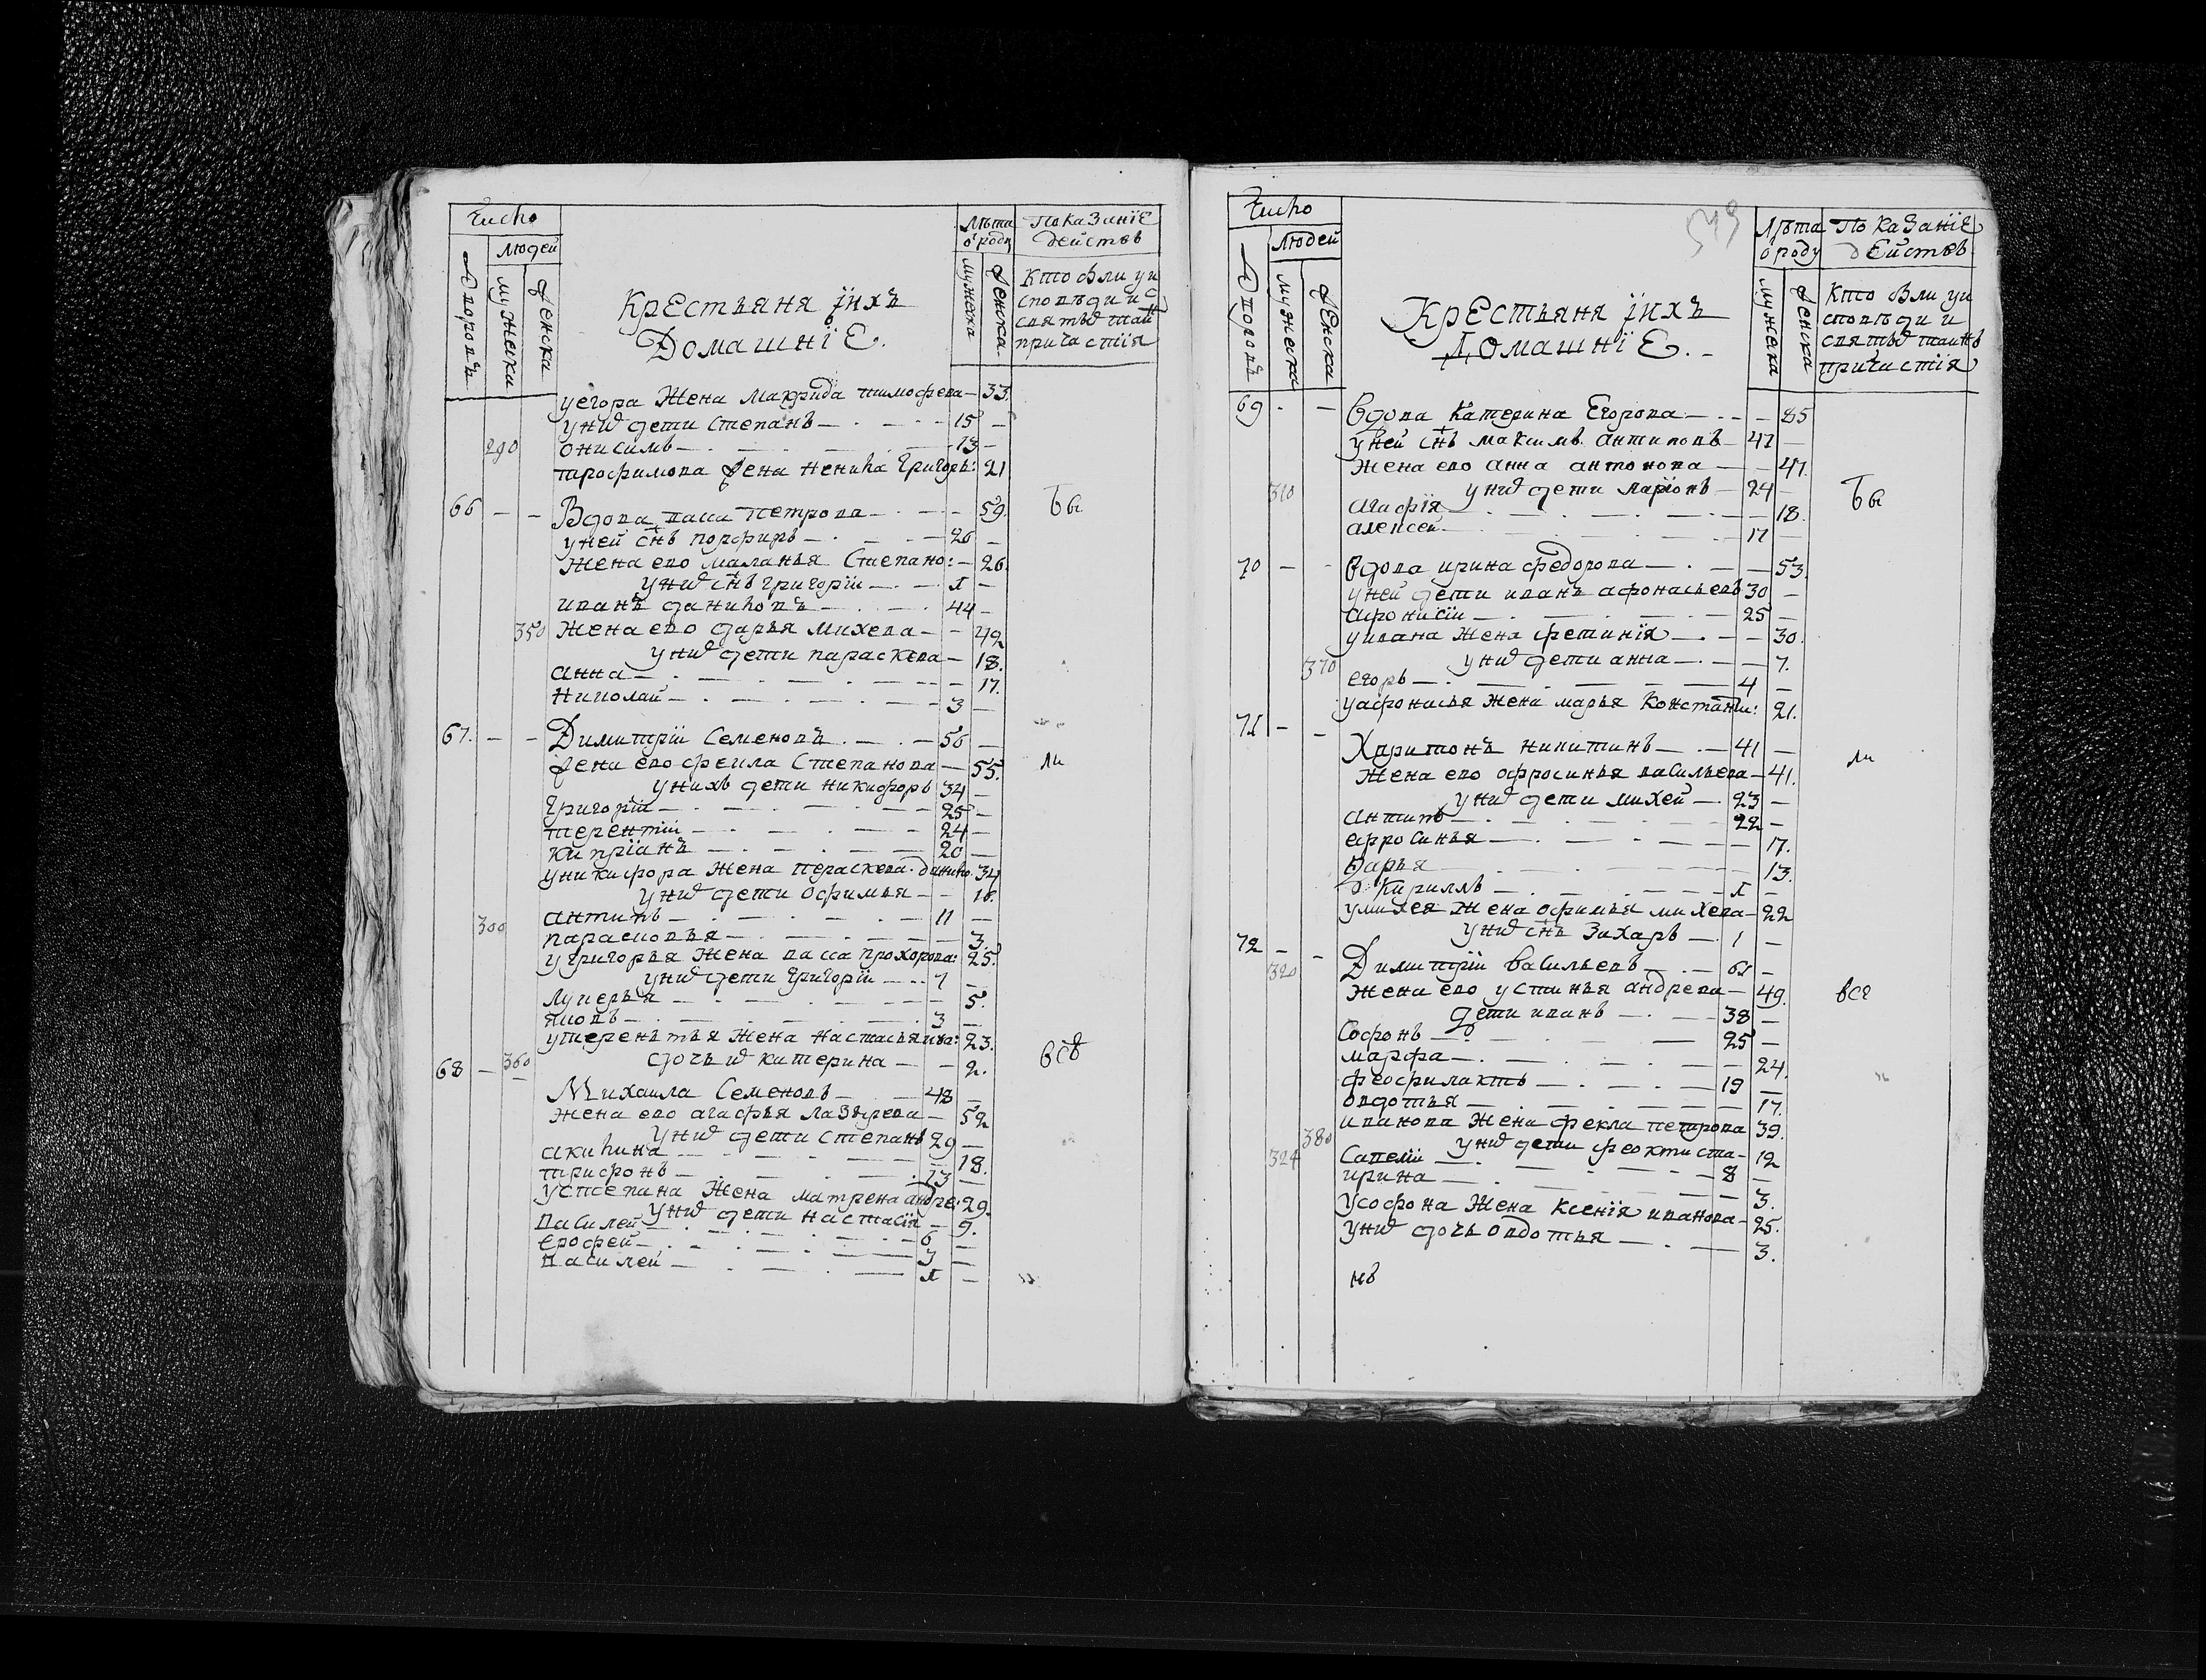 Число
Людей
Дворовъ
Мужеска
Женска
Крестьяня їихъ
Домашнїе.
Лѣта
ѿ роду
Мужеска
Женска
Показанїе
действъ
Кто были у и
споведи и с
святых таи
причастїя
у егора жена Макрида тимофева — 33.
у них дети степанъ — 15 —
290 онисимъ — 13 —
трофимова жена Ненила Григорь: 21
66 — — Вдова васса петрова — 59.
Бы
у ней снъ порфиръ — 26 —
жена ево маланья Степано: — 26.
у них снъ григории — 1 —
иванъ даниловъ — 44 —
350 жена ево дарья михева — 42
у них дети параскева — 18.
анна — 17.
Николаи — 3 —
67. — — Димитрїи Семеновъ — 56 —
жена ево феила Степанова — 55.
ли
у нихъ дети никифоръ 34 —
Григорїи — 25 —
терентїи — 24 —
киприанъ — 20 —
у никифора жена пераскева данило. 34
у них дети офимья — 16.
300 антипъ — 11 —
парасковья — 3.
у григорья жена васса прохорова: 25.
у них дети Григорїи — 7 —
лукерья — 5.
яковъ — 3 —
у терентья жена настасья ива: 23.
360 дочь их катерина — 2.
все
68 — — Михаила Семеновъ — 48 —
жена ево агафья лазырева — 52
у них дети степанъ 29 —
акилина — 18.
трифонъ — 13 —
у степана жена матрена андре: 29.
у них дети настасїя — 9.
василей — 6 —
ерофей — 3 —
василей — 1 —
549
Число
Людей
Дворовъ
Мужеска
Женска
Крестьяня їихъ
Домашнїе. —
Лѣта
ѿ роду
Мужеска
Женска
Показанїе
действъ
Кто были у и
споведи и
святых таинъ
причастїя
69 — — Вдова Катерина Егорова — 85
у ней снъ максимъ антиповъ — 47 —
жена ево анна антонова — 47.
310 у них дети ларїонъ — 24 —
Бы
агафїя — 18.
алексей — 17 —
70 — — Вдова ирина федорова — 53.
у ней дети иванъ афонасьевъ 30 —
афонисїи — 25 —
у ивана жена фетинїя — 30.
370 у них дети анна — 7.
егоръ — 4 —
у афонасья жена марья Константи: 21.
71 — — Харитонъ никитинъ — 41 —
ли
жена ево офросинья васильева — 41.
у них дети михей — 23 —
антипъ — 22 —
ефросинья — 17.
дарья — 13.
Кириллъ — 1 —
у михея жена офимья михева — 22
у них снъ Захаръ — 1 —
72 — —
320 Димитрїи васильевъ — 61 —
жена ево устинья андрева — 49.
все
дети иванъ — 38 —
Софонъ — 25 —
марфа — 24.
феофилактъ — 19 —
овдотья — 17.
иванова жена фекла петрова 39.
380 у них дети феоктиста — 12
324 савелїи — 8 —
ирина — 3.
у софона жена ксенїя иванова — 25.
у них дочь овдотья — 3.
нъ